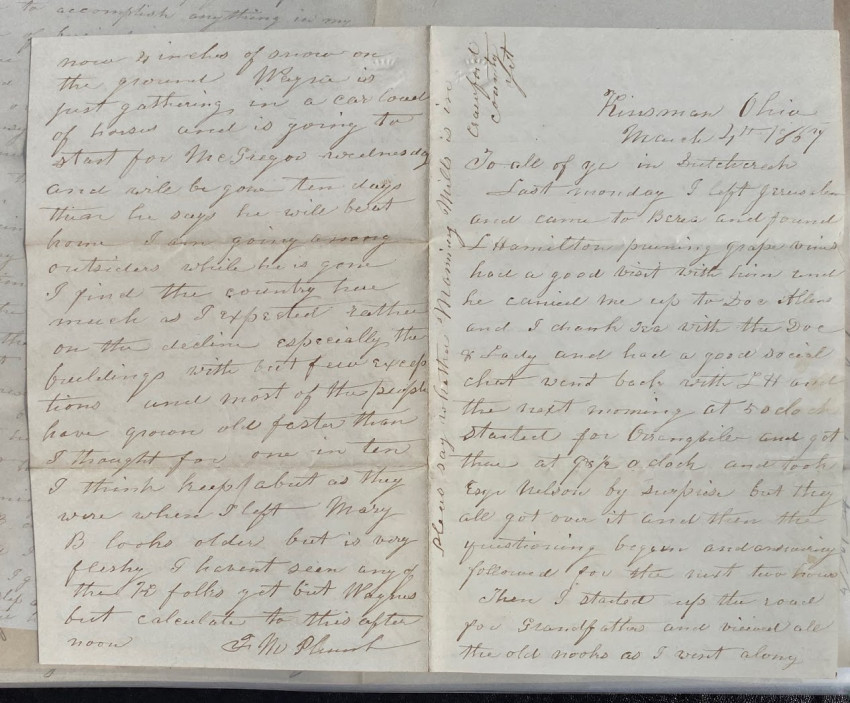 Kinsman Ohio
March 4th 1867
To all of ye in Dutchcreek
Last monday I left Jerusalem
and came to Berea and found
L Hamilton pruning grape vines
had a good visit with him and
he carried me up to Doc Allens
and I drank tea with the Doc
& Lady and had a good social
chat went back with L H and
the next morning at 5 oclock
started for and got
there at oclock and took
Esqr Nelson by surprise but they
all got over it and then the
questioning begun and answering
followed for the next two hours
Then I started up the road
for Grandfathers and viewed all
the old nooks as I went along
now 4 inches of snow on
the ground Wayne is
just gathering in a car load
of horses and is going to
start for McGregor wednesday
and will be gone ten days
then he says he will be at
home I am going among
outsiders while he is gone
I find the country here
much as I expected rather
on the decline especially the
buildings with but few excep
tions and most of the people
have grown old faster than
I thought for one in ten
I think keep about as they
were when I left Mary
B looks older but is very
fleshy I havent seen any of
the K folks yet but Waynes
but calculate to this after
noon F. M. Plumb
Please say whether Manning Mills is in
Crawford
county
yet
to accomplish anything in my